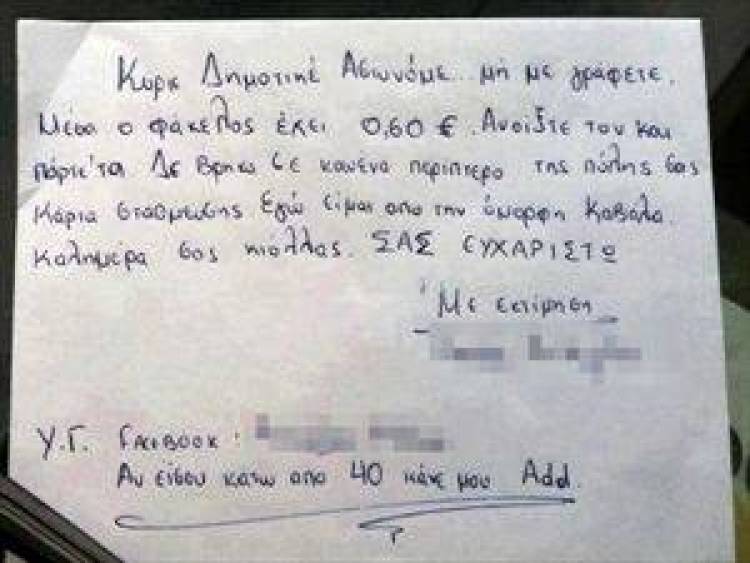 Κυρα Δημοτικέ Αστυνόμε.. μη με γράφετε.
Μέσα ο φάκελος έχει 0,60 €. Ανοίξτε τον και
πάρτε'τα Δε βρήκω σε κανένα περίπτερο της πόλης σας
Κάρτα στάθμευσης Εγώ είμαι απο την όμορφη Καβάλα.
Καλημέρα σας κιόλλας. ΣΑΣ ΕΥΧΑΡΙΣΤΩ
Με εκτίμηση
Υ.Γ. Facebook:
Αν είσαι κατω απο 40 κάνε μου Add.